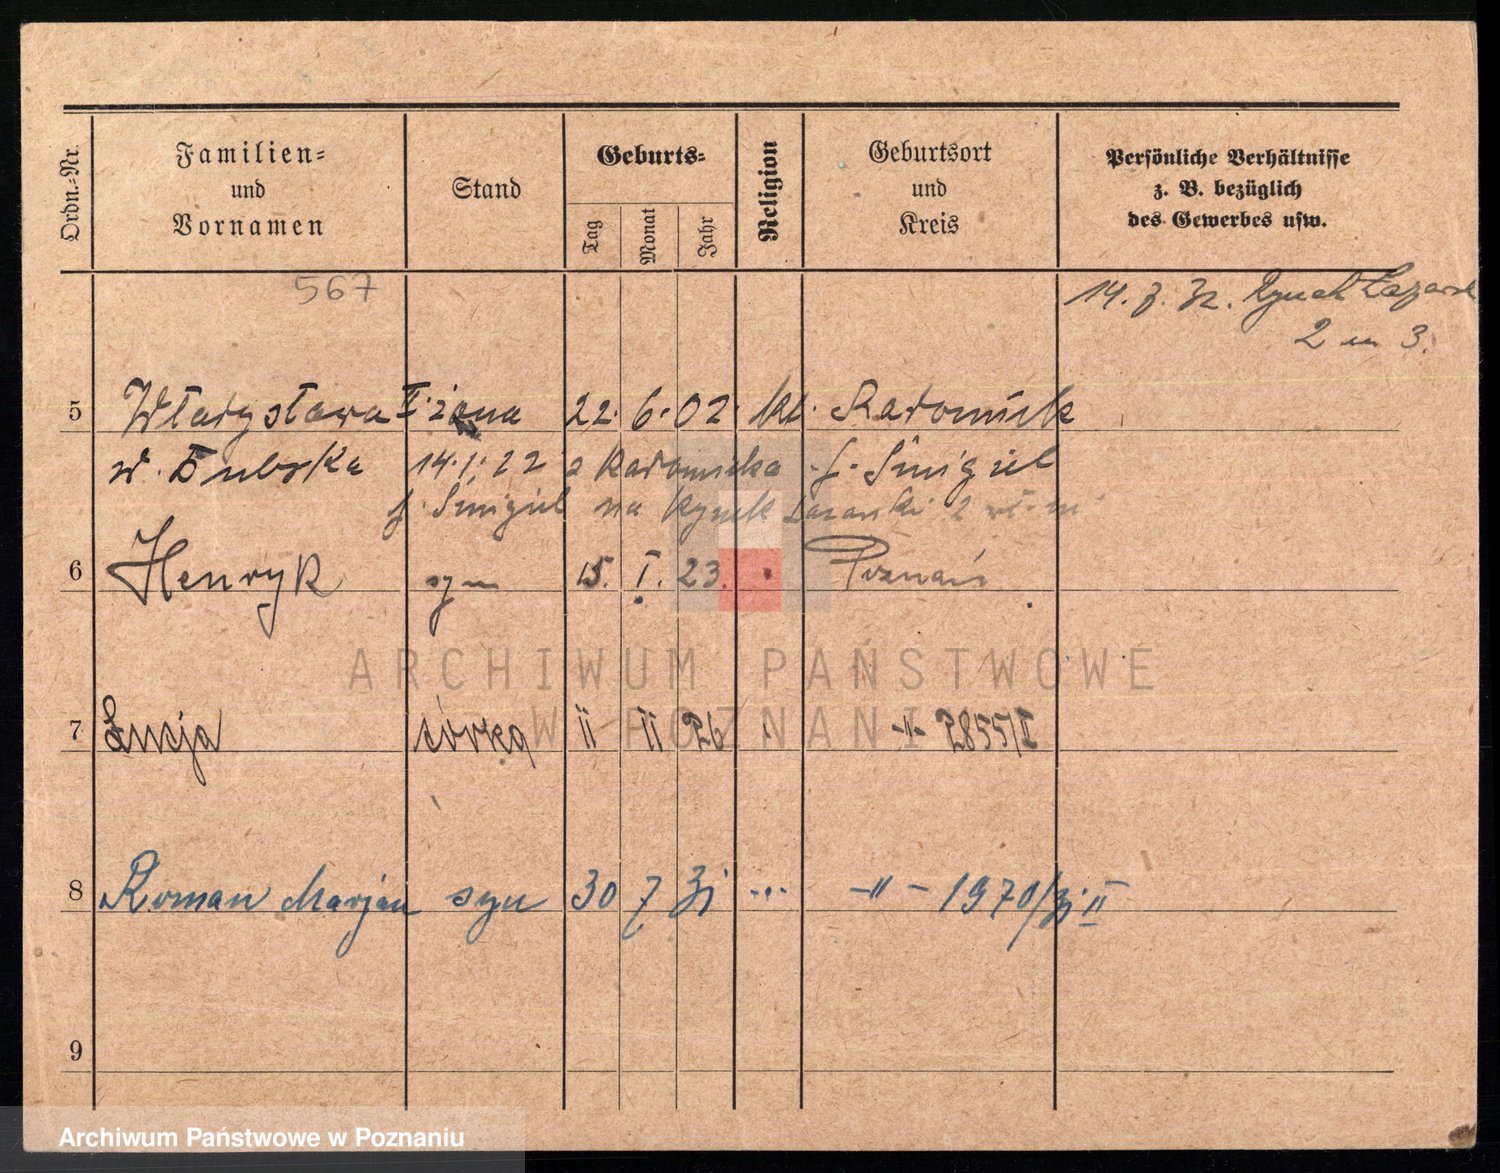 Ordn.-Nr.
Familien-
und
Vornamen
Stand
Geburts-
Tag
Monat
Jahr
Religion
Geburtsort
und
Kreis
Persönliche Verhältnisse
z. B. bezüglich
des Gewerbes usw.
567
14. 3. 32. Rynek Łazarsk
2 m 3.
5 Władysława II. żona 22. 6. 02. kt. Radomick
14. I. 22 z Radomicka f. Śmigiel
f. Śmigiel na Rynek Łazarski 2
6 Henryk syn 15. I. 23. Poznań
7 Łucja córka II II 26 -"- 2855/I
8 Roman Marjan syn 30 7 31 ... -"- 1970/31 II
9
ARCHIWUM PAŃSTWOWE
W POZNANIU
Archiwum Państwowe w Poznaniu